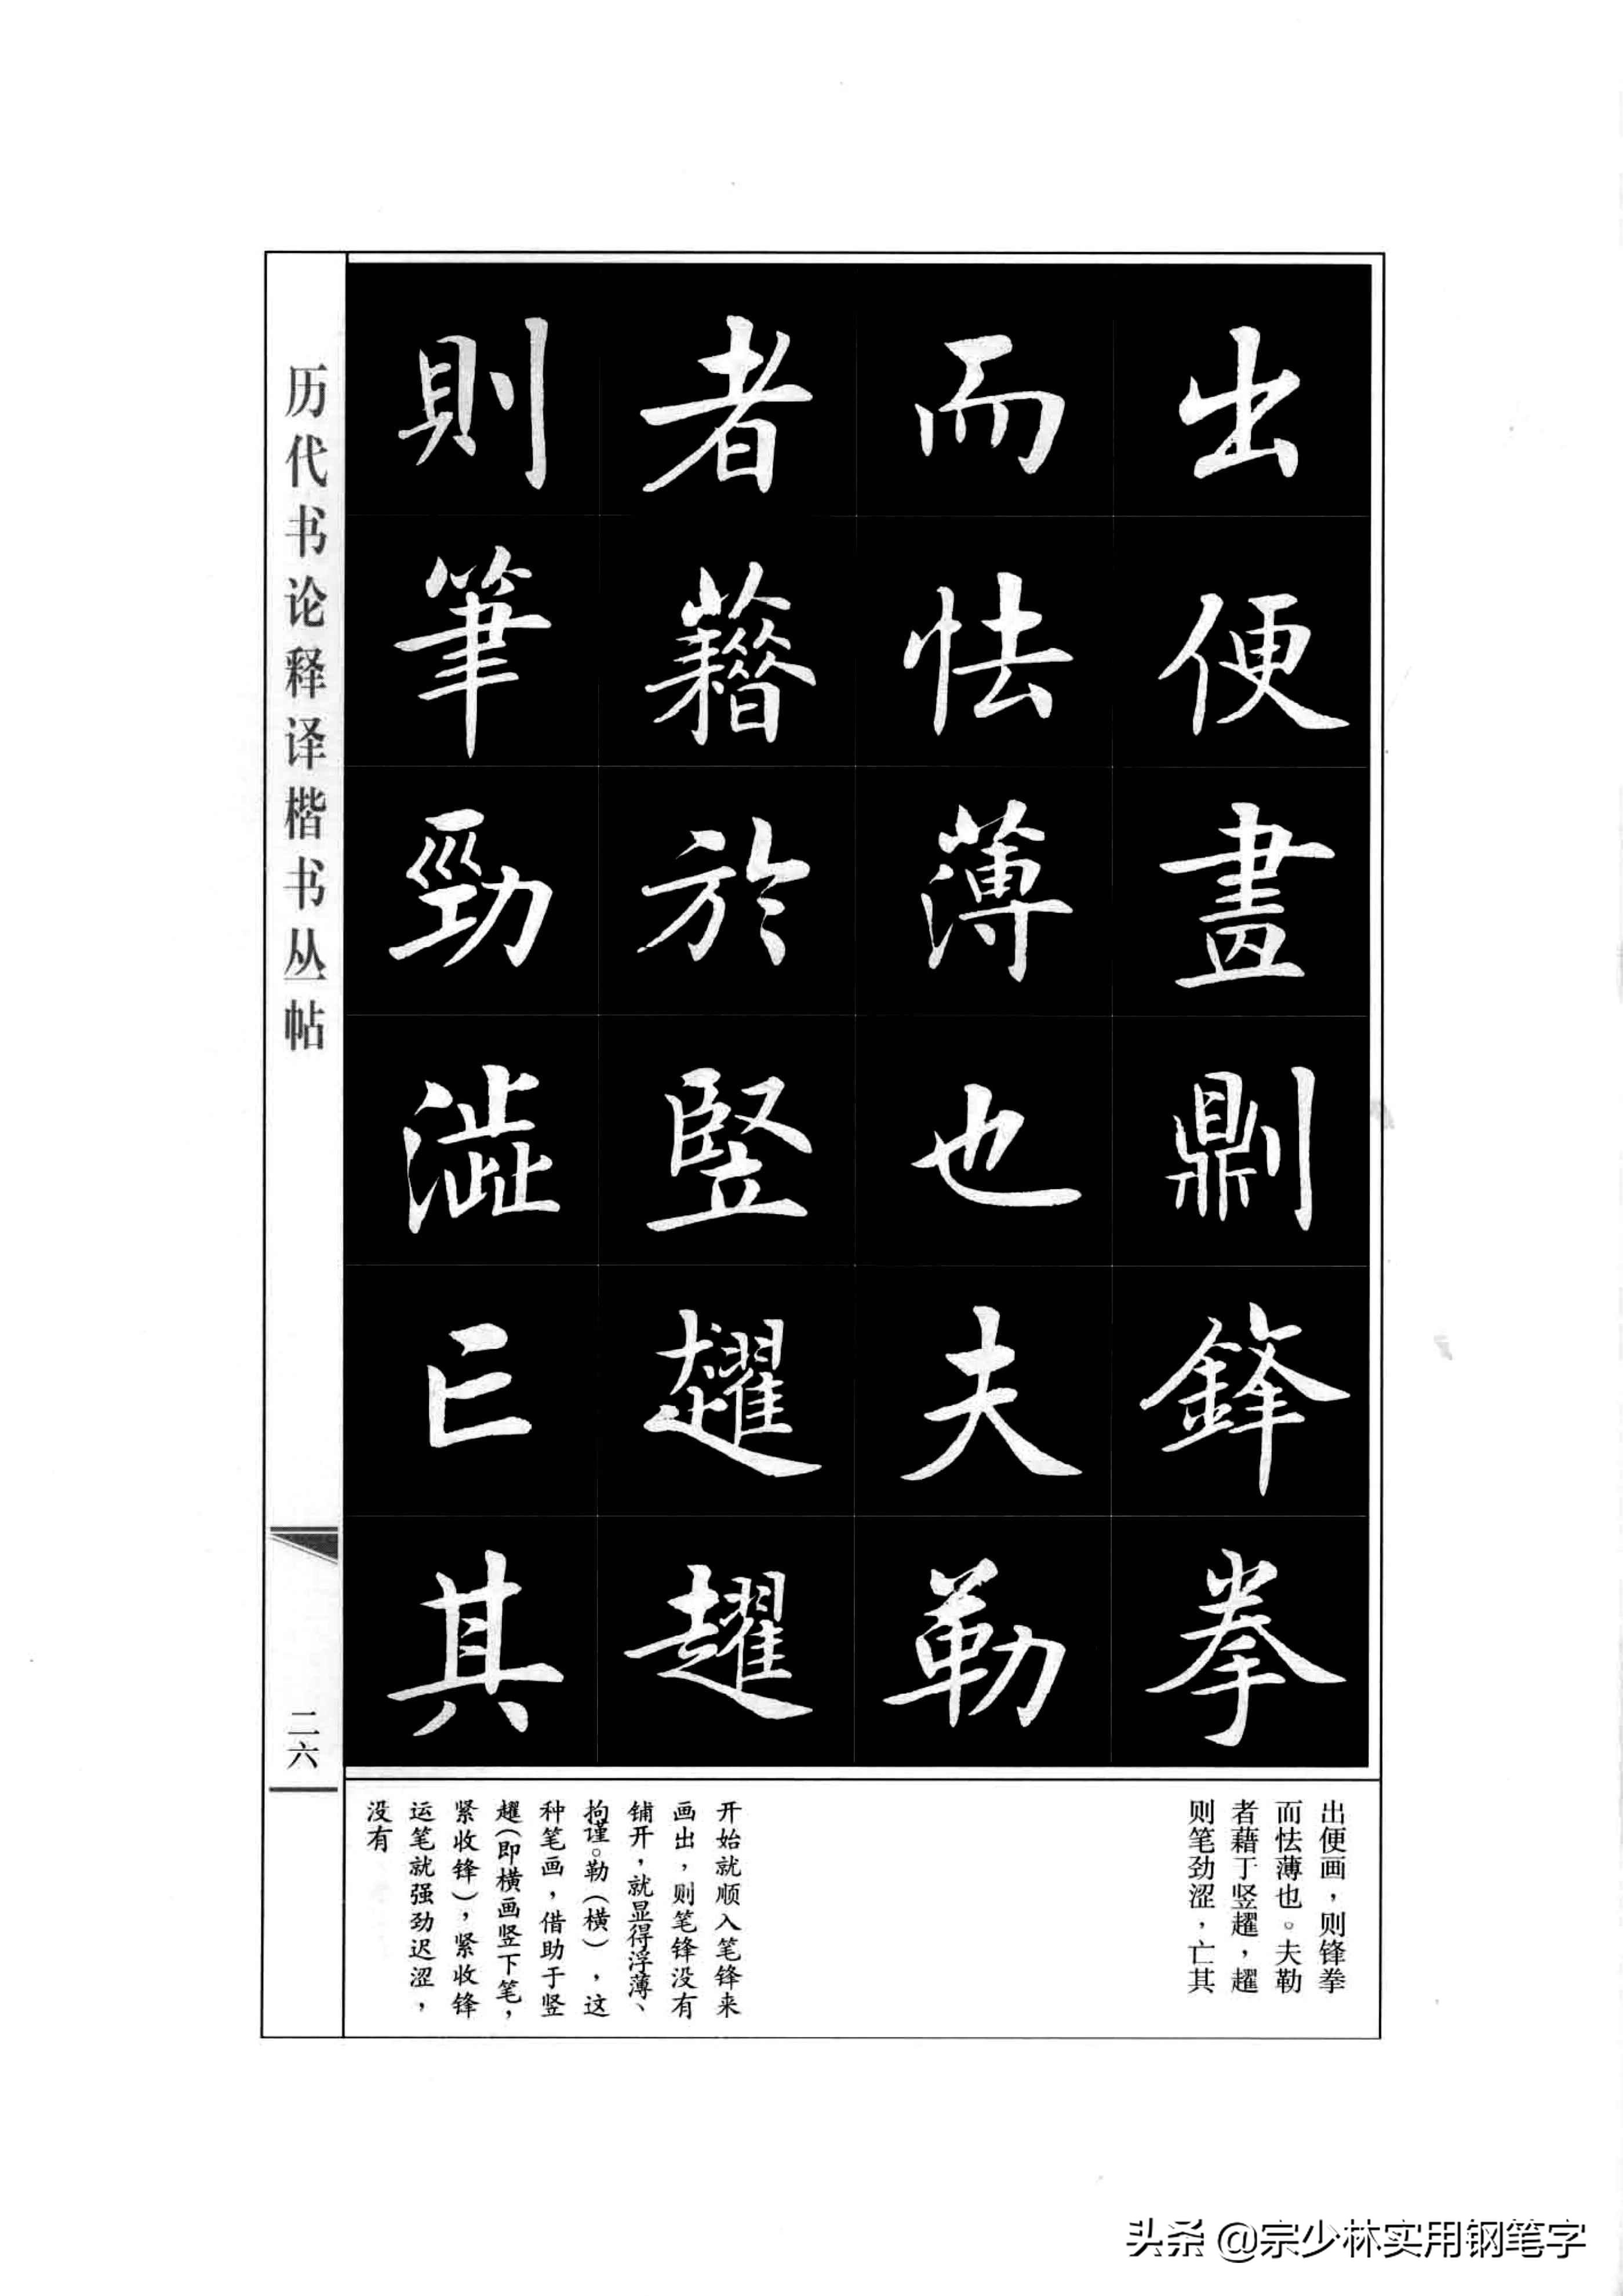 出便畫劓鋒拳
而怯薄也夫勒
者藉於竪趯趯
則筆勁澁亡其
出便画，则锋拳
而怯薄也。夫勒
者藉于竖趯，趯
则笔劲涩，亡其
开始就顺入笔锋来
画出，则笔锋没有
铺开，就显得浮薄、
拘谨。勒（横），这
种笔画，借助于竖
趯（即横画竖下笔，
紧收锋），紧收锋
运笔就强劲迟涩，
没有
历代书论释译楷书丛帖
二六
头条 @宗少林实用钢笔字